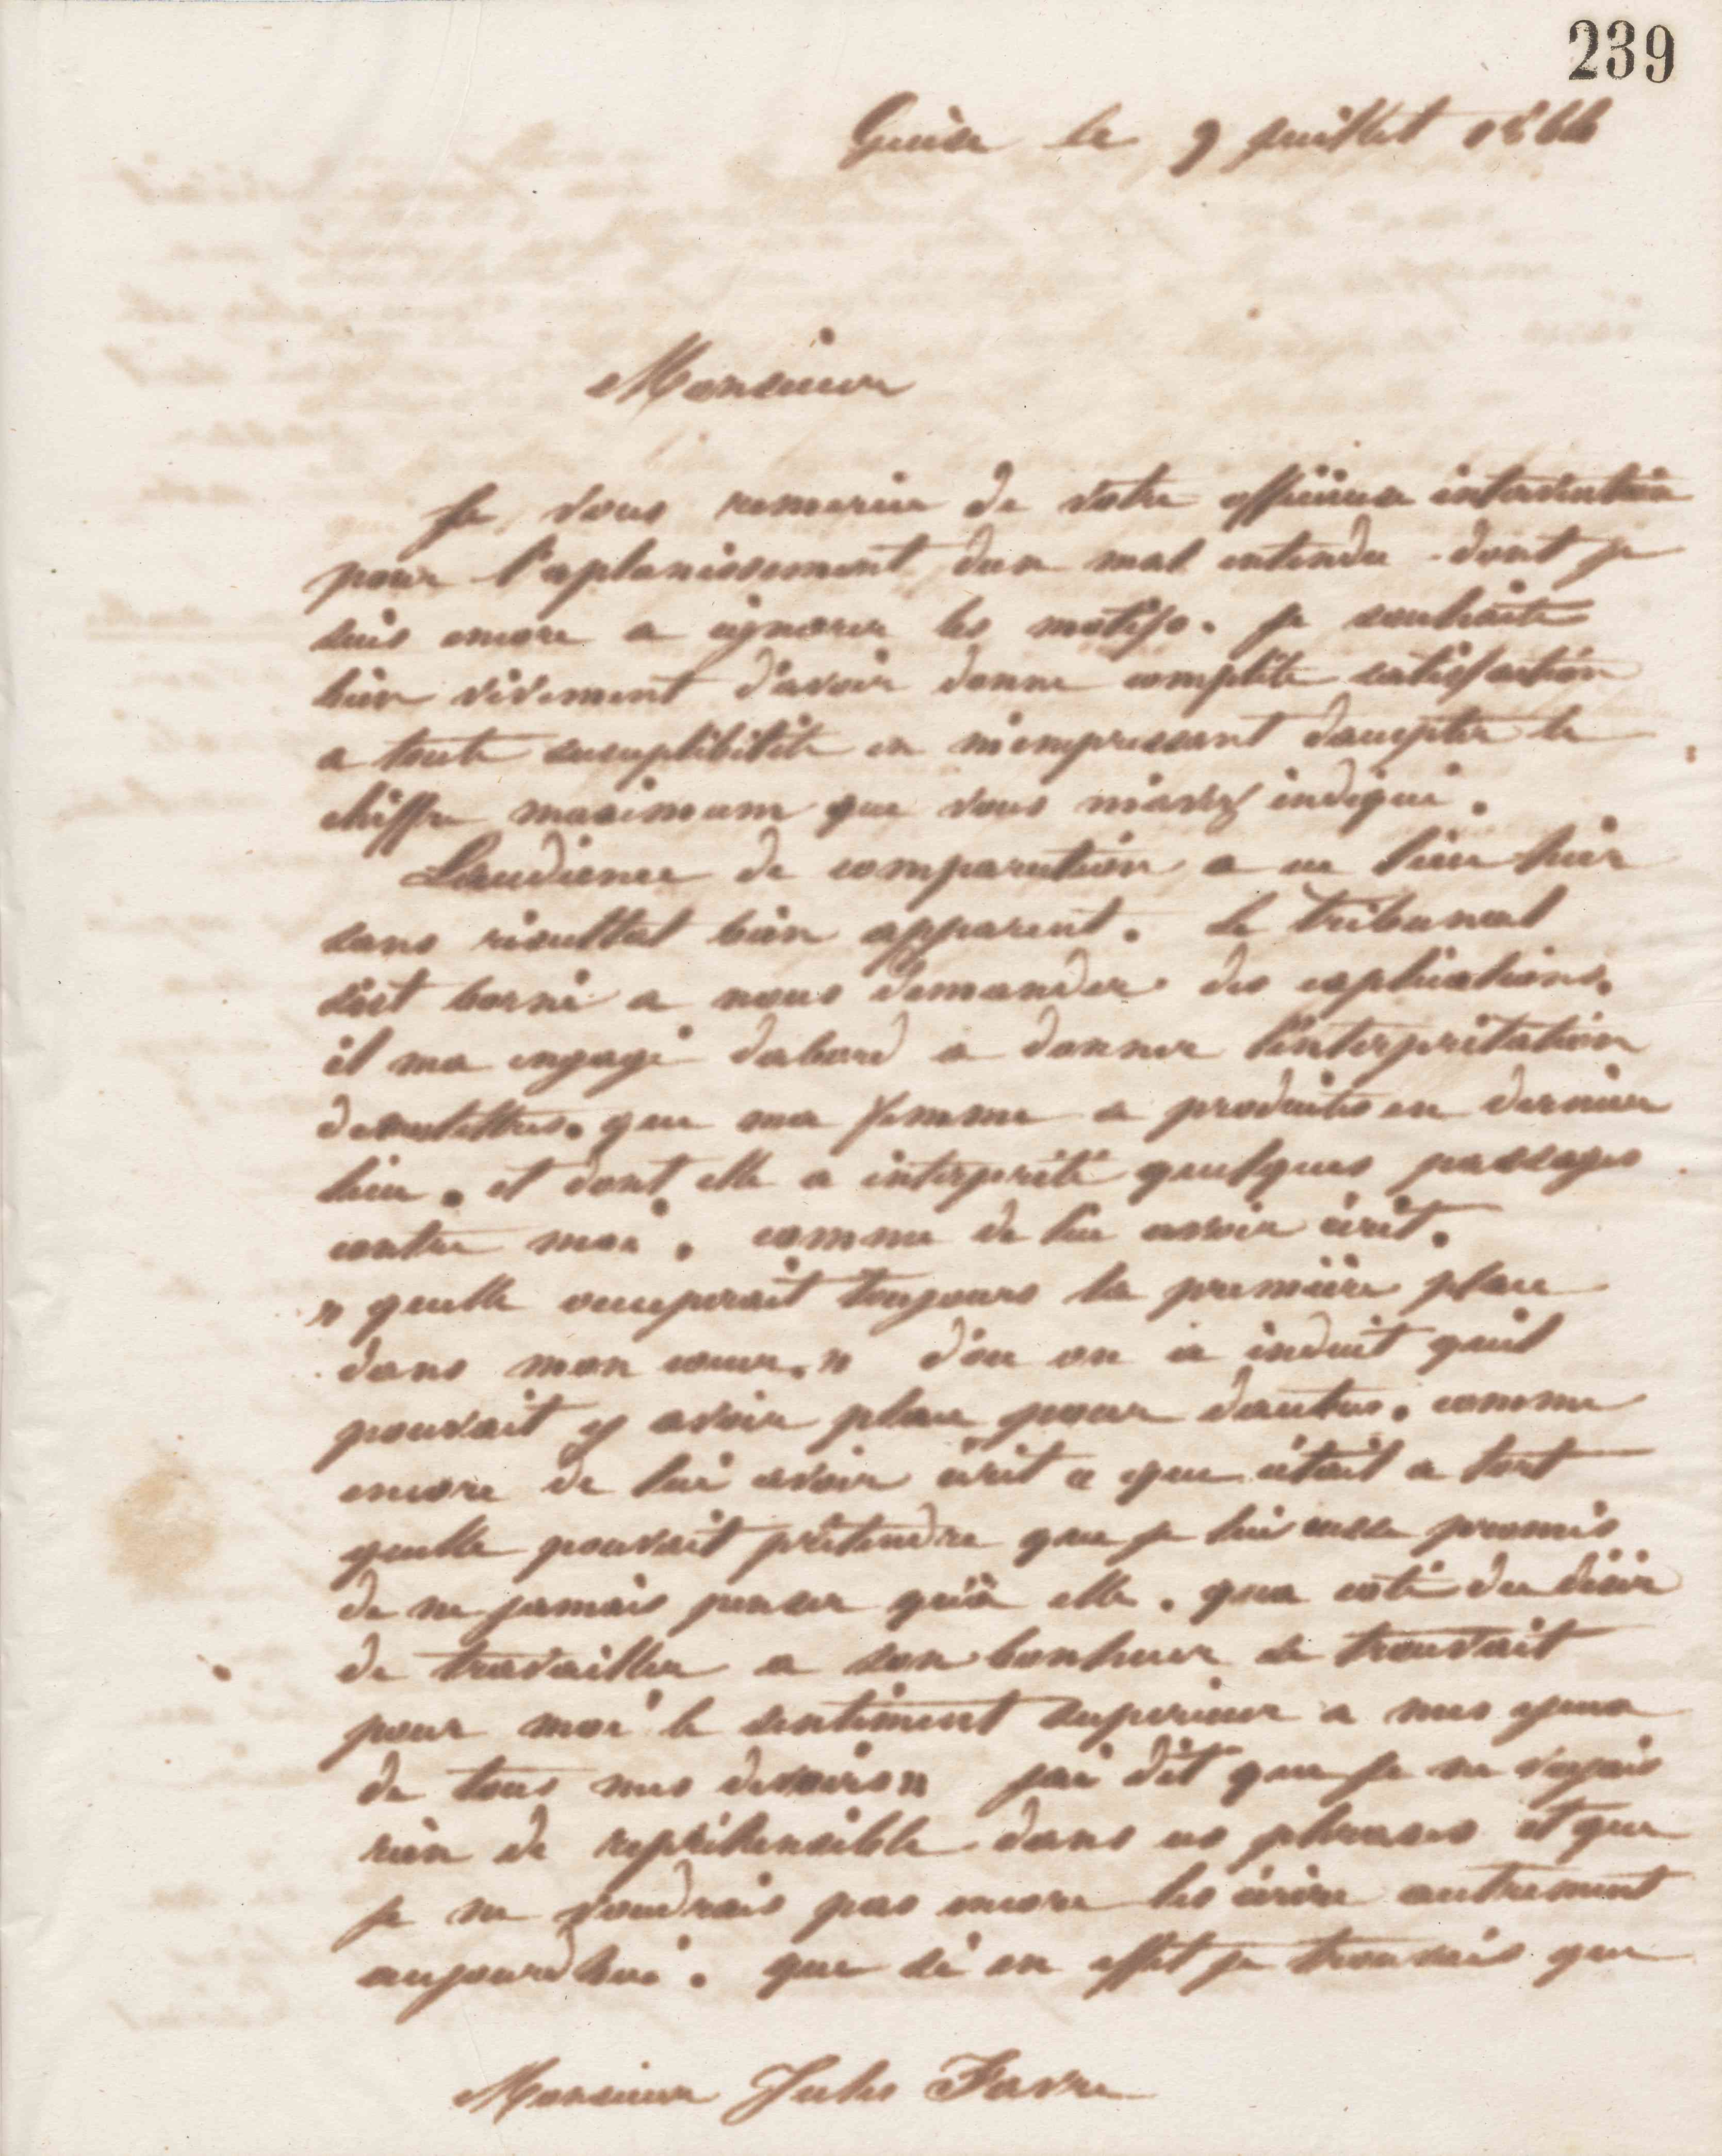 239
Guise le 9 juillet 1864
Monsieur
Je vous remercie de votre officieuse intervention
pour l'aplanissement dun mal entendu dont je
suis encore a ignorer les motifs. je souhaite
bien vivement d'avoir donné complète satisfaction
a toute susceptibilité en m'empressant daccepter le
chiffre maximum que vous m'avez indiqué.
Laudience de comparution a eu lieu hier
sans résultat bien apparent. le tribunal
s'est borné a nous demander des explications.
il ma engagé dabord a donner l'interprétation
de lettres. que ma femme a produites en dernier
lieu. et dont elle a interprété quelques passages
contre moi. comme de lui avoir écrit.
" quelle occuperait toujours la première place
dans mon cœur." d'ou on a induit quil
pouvait y avoir place pour dautres. comme
encore de lui avoir écrit " que c'était a tort
quelle pouvait prétendre que je lui eusse promis
de ne jamais penser qu'à elle. qua coté du désir
de travailler a son bonheur se trouvait
pour moi le sentiment supérieur a mes yeux
de tous mes devoirs" jai dit que je ne voyais
rien de repréhensible dans ces phrases et que
je ne voudrais pas encore les écrire autrement
aujourdhui. que si en effet je trouvais que
Monsieur Jules Favre